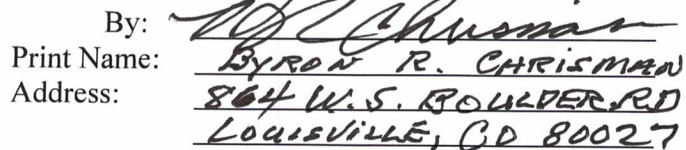 By: B R Chrisman
Print Name: BYRON R. CHRISMAN
Address: 864 W. S. BOULDER RD
LOUISVILLE, CO 80027